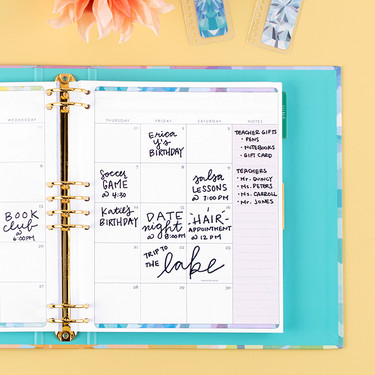 WEDNESDAY
THURSDAY
FRIDAY
SATURDAY
NOTES
Erica
y's
BIRTHDAY
TEACHER GIFTS
• PENS
• NOTEBOOKS
• GIFT CARD
TEACHERS
• Mr. QUINCY
• Ms. PETERS
• Ms. CARROLL
• Mr. JONES
Soccer
GAME
@ 4:30
salsa
LESSONS
@ 7:00 PM
BOOK
club
@
6:00PM
Katie's
BIRTHDAY
DATE
night
@ 8:00PM
HAIR
APPOINTMENT
@ 12 PM
TRIP TO
THE lake